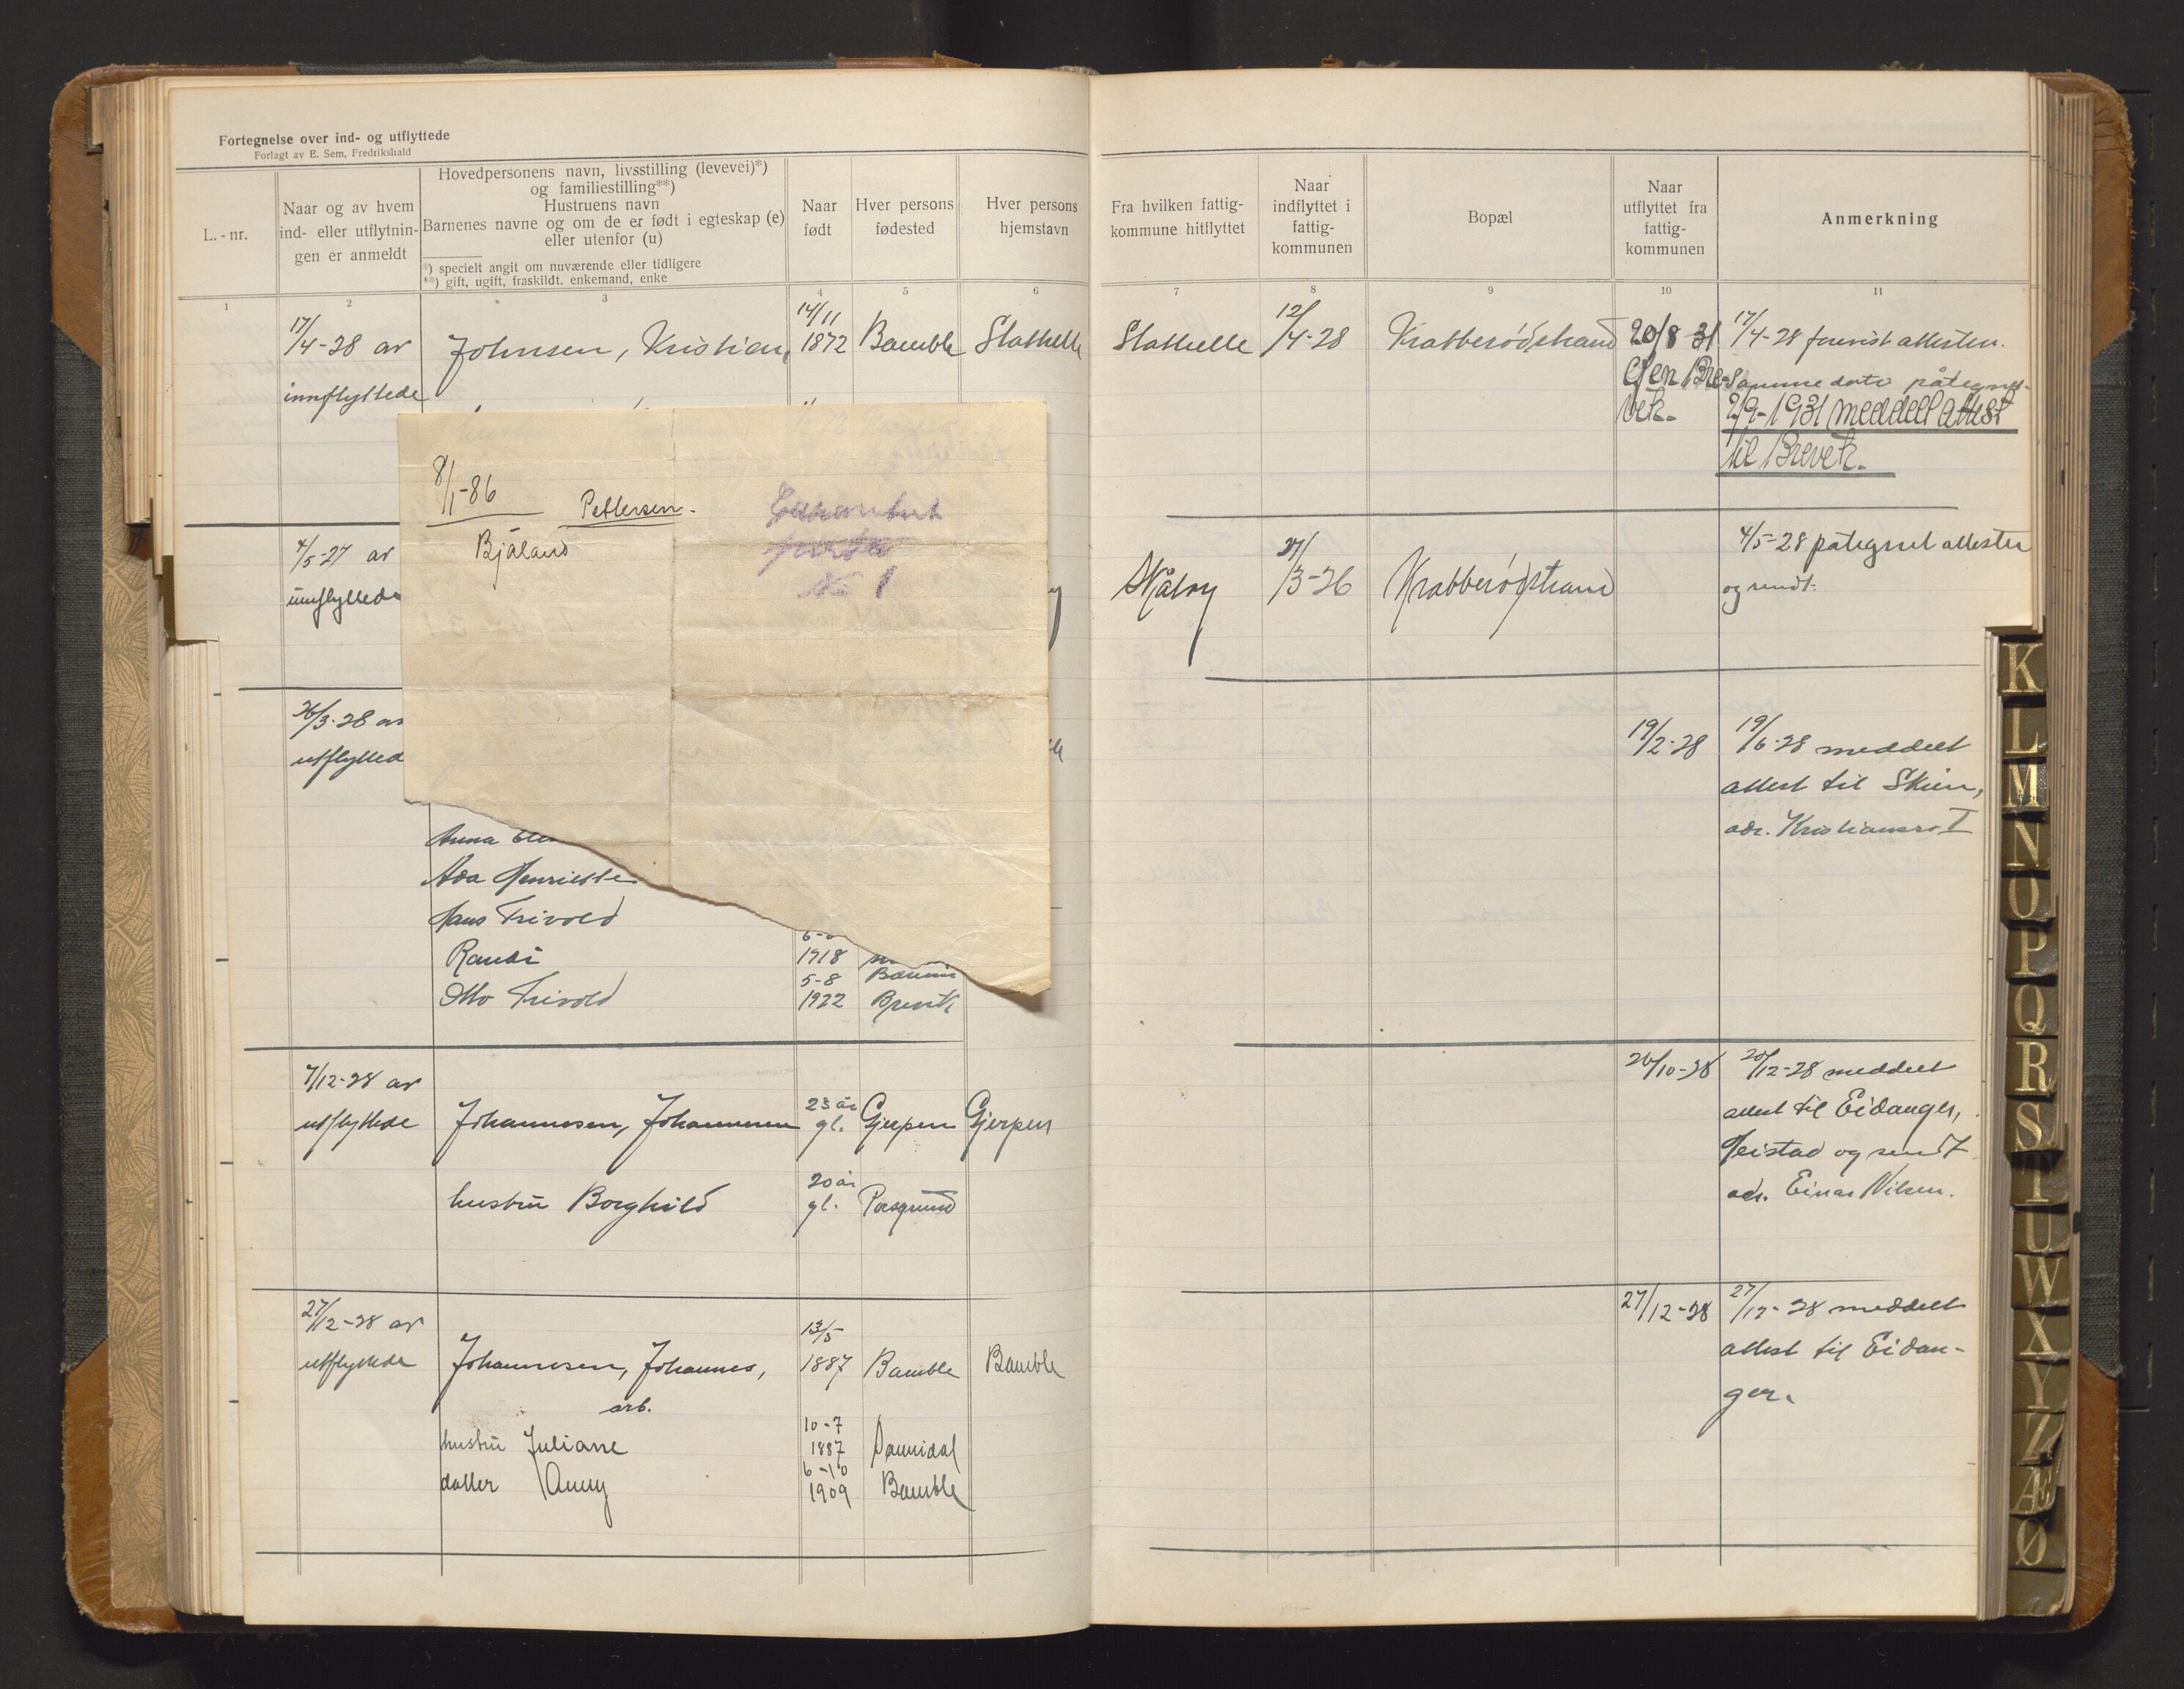 Fortegnelse over ind- og utflyttede
Forlagt av E. Sem, Fredrikshald
L.-nr.
Naar og av hvem
ind- eller utflytnin-
gen er anmeldt
Hovedpersonens navn, livsstilling (levevei)*)
og familiestilling**)
Hustruens navn
Barnenes navne og om de er født i egteskap (e)
eller utenfor (u)
*) specielt angit om nuværende eller tidligere
**) gift, ugift, fraskildt, enkemand, enke
Naar
født
Hver persons
fødested
Hver persons
hjemstavn
Fra hvilken fattig-
kommune hitflyttet
Naar
indflyttet i
fattig-
kommunen
Bopæl
Naar
utflyttet fra
fattig-
kommunen
Anmerkning
1 2 3 4 5 6 7 8 9 10 11
17/4-28 av
innflyttede
Johnsen, Kristian,
14/11
1872
Bamble
Stathelle
Stathelle
12/4-28
Krabberødstrand
20/8 31
Igen Bre-
vik-
17/4-28 forevist attesten.
Samme dato påtegnet
2/9-1931 meddelt attest
til Brevik.
8/1-86
Pettersen.
Bjåland
No 1
4/5-27 av
innflyttede
27/3-26
Krabberødstrand
4/5-28 påtegnet attesten
og sendt.
26/3-28 av
utflytted
19/2-28
19/6-28 meddelt
attest til Skien,
adr. Kristiansro I
Anna
Ada Henriette
Hans Trivold
Randi
1918
5-8
Otto Trivold
1922
Brevik
7/12-28 av
utflyttede
Johannesen, Johannesen
23 år
gl.
Gjerpen
Gjerpen
hustru Borghild
20 år
gl.
Porsgrund
20/10-28
20/12-28 meddelt
attest til Eidanger,
Heistad og sendt
adr. Einar Nilsen.
27/12-28 av
utflyttede
Johannesen, Johannes,
arb.
13/5
1887
Bamble
Bamble
hustru Juliane
10-7
1887
Sannidal
datter Anny
6-10
1909
Bamble
27/12-28
27/12-28 meddelt
attest til Eidan-
ger.
K
L
M
N
O
P
Q
R
S
T
U
W
X
Y
Z
Æ
Ø